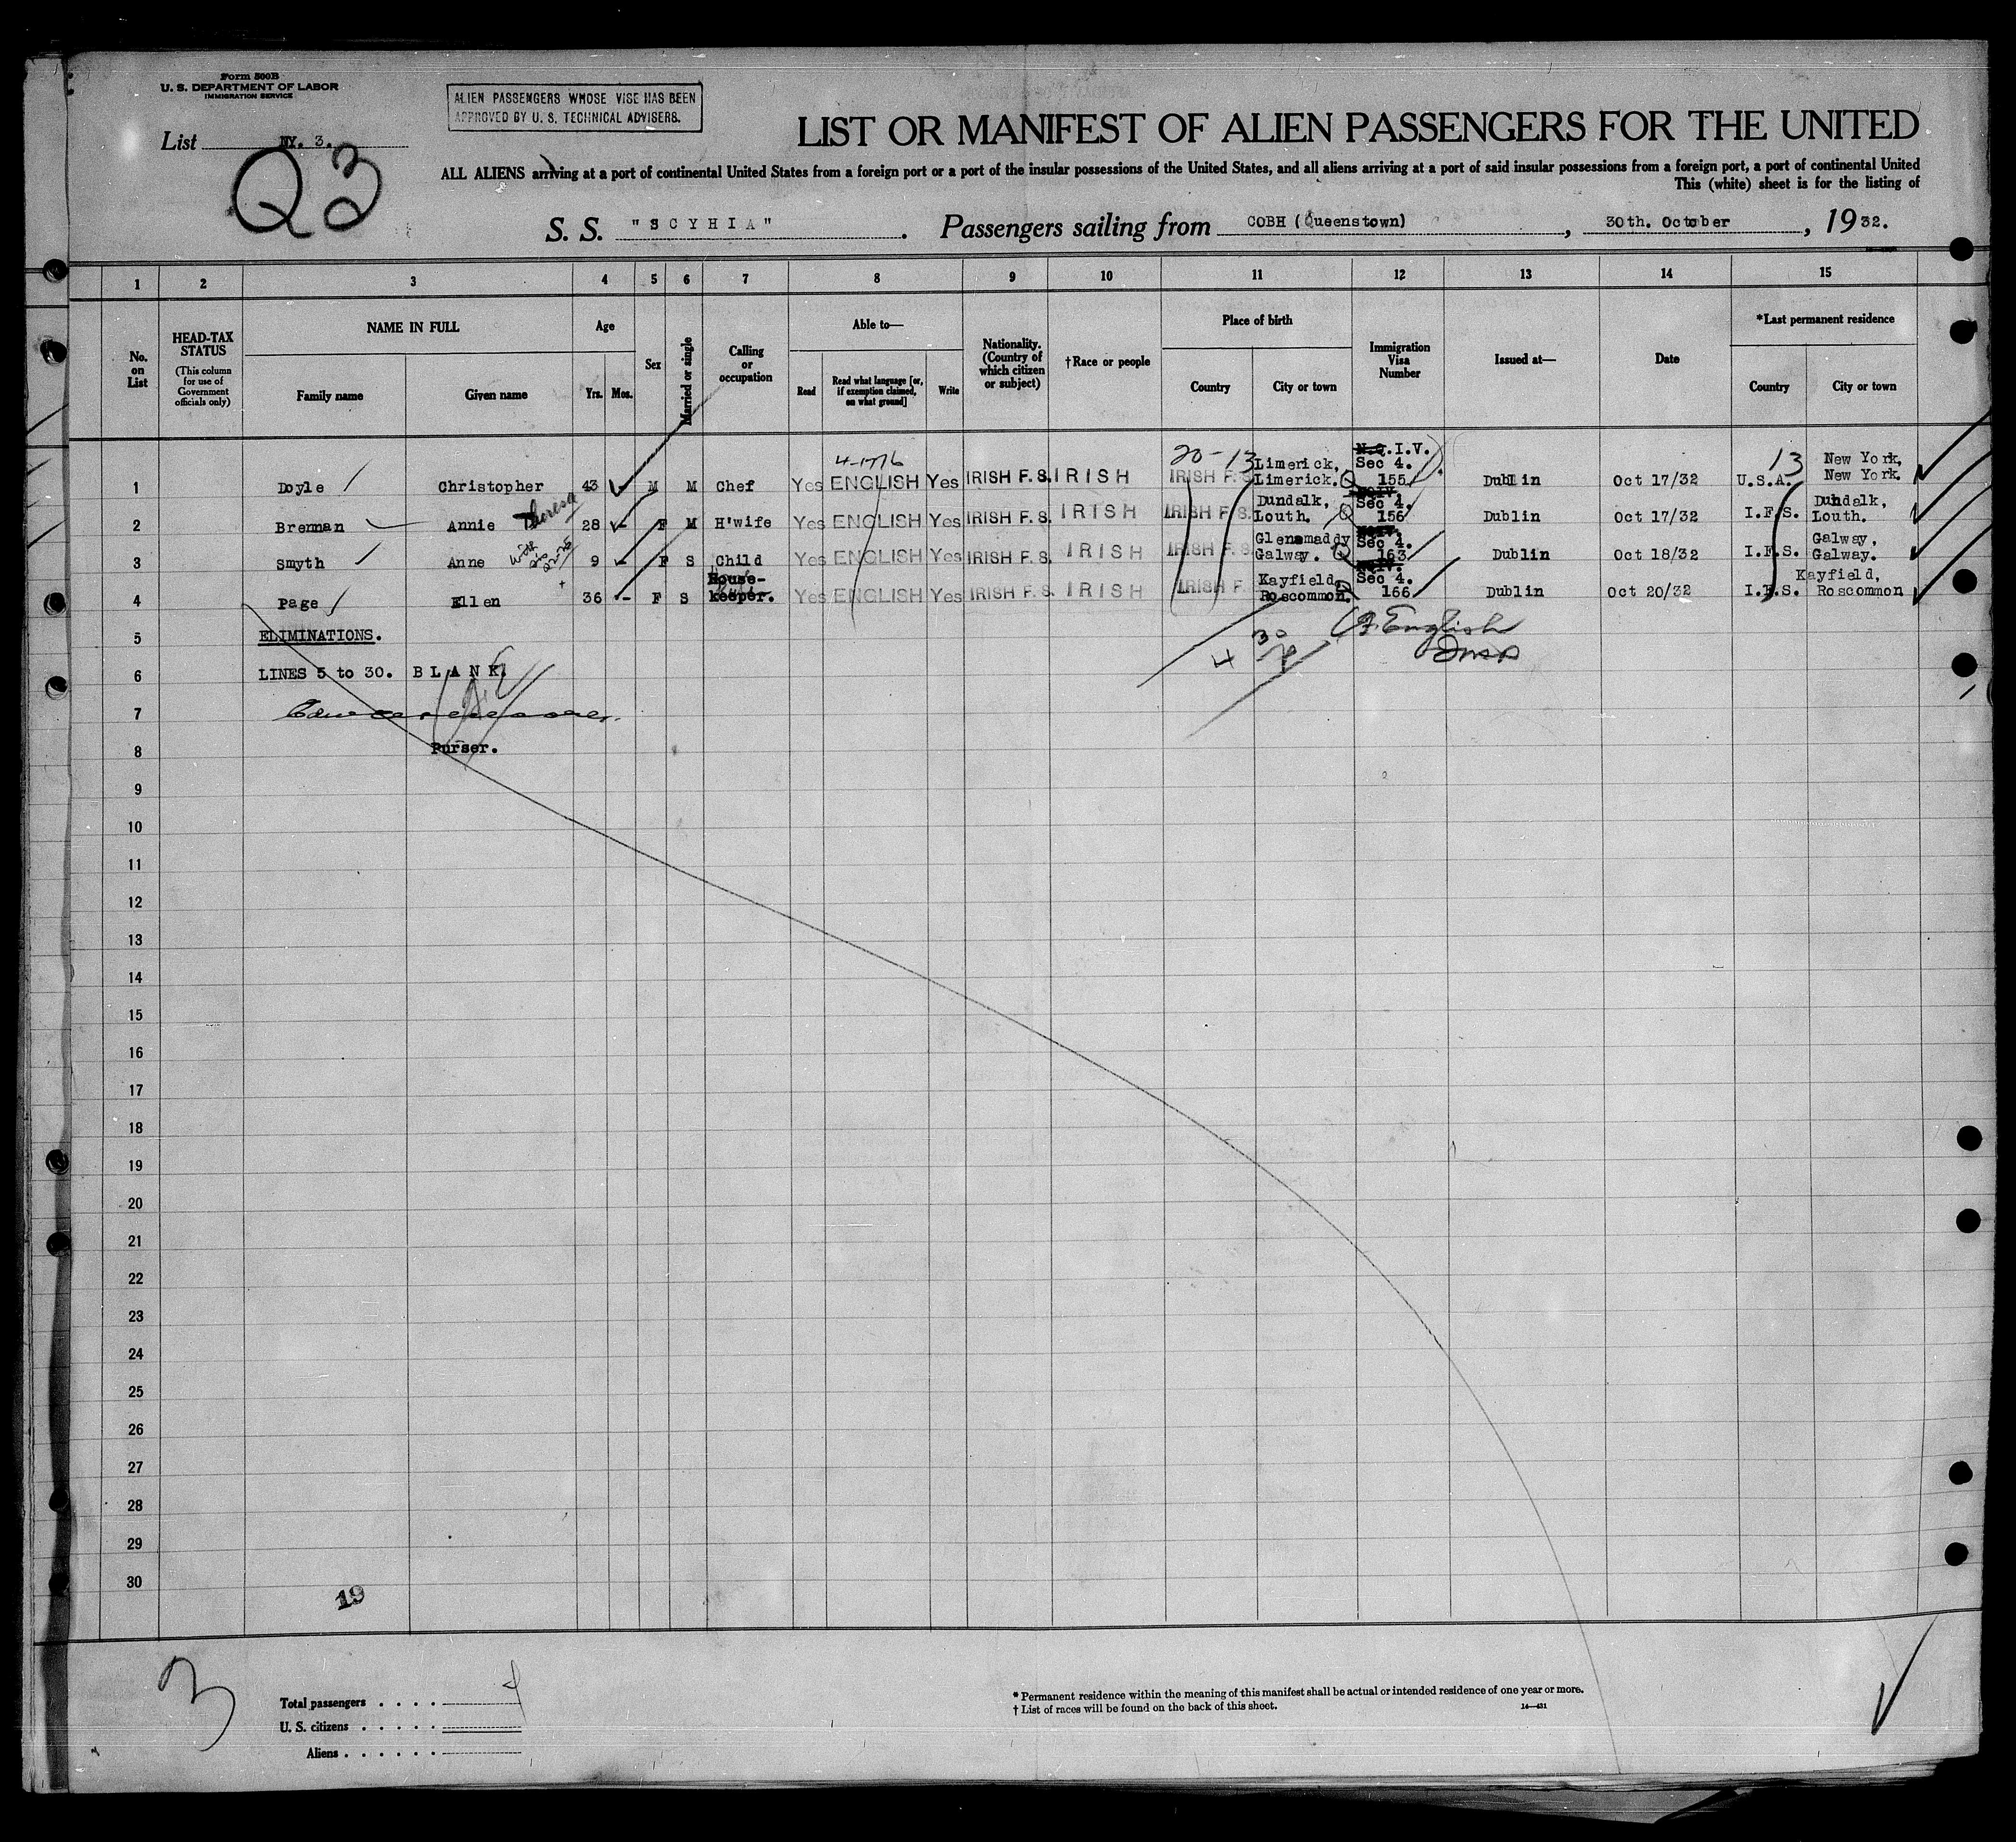 Form 500B
U. S. DEPARTMENT OF LABOR
IMMIGRATION SERVICE
ALIEN PASSENGERS WHOSE VISE HAS BEEN
APPROVED BY U. S. TECHNICAL ADVISERS.
List NY. 3.
Q3
LIST OR MANIFEST OF ALIEN PASSENGERS FOR THE UNITED
ALL ALIENS arriving at a port of continental United States from a foreign port or a port of the insular possessions of the United States, and all aliens arriving at a port of said insular possessions from a foreign port, a port of continental United
This (white) sheet is for the listing of
S. S. "SCYHIA". Passengers sailing from COBH (Queenstown), 30th. October, 1932.
1 2 3 4 5 6 7 8 9 10 11 12 13 14 15
No. on List
HEAD-TAX STATUS (This column for use of Government officials only)
NAME IN FULL
Family name
Given name
Age
Yrs. Mos.
Sex
Married or single
Calling or occupation
Able to—
Read
Read what language [or, if exemption claimed, on what ground]
Write
Nationality. (Country of which citizen or subject)
†Race or people
Place of birth
Country
City or town
Immigration Visa Number
Issued at—
Date
*Last permanent residence
Country
City or town
4-1776
20-13
13
1 Doyle Christopher 43 - M M Chef Yes ENGLISH Yes IRISH F.S. IRISH IRISH F.S. Limerick, Limerick. N.Q.I.V. Sec 4. 155 Dublin Oct 17/32 U.S.A. New York, New York.
2 Brennan Annie Theresa 28 - F M H'wife Yes ENGLISH Yes IRISH F.S. IRISH IRISH F.S. Dundalk, Louth. NQIV. Sec 4. 156 Dublin Oct 17/32 I.F.S. Dundalk, Louth.
3 Smyth Anne 9 - F S Child Yes ENGLISH Yes IRISH F.S. IRISH IRISH F.S. Glenamaddy Galway. NQIV. Sec 4. 163 Dublin Oct 18/32 I.F.S. Galway, Galway.
4 Page Ellen 36 - F S House-keeper. Yes ENGLISH Yes IRISH F.S. IRISH IRISH F. Kayfield, Roscommon. NQIV. Sec 4. 166 Dublin Oct 20/32 I.F.S. Kayfield, Roscommon
5 ELIMINATIONS.
English
4 30
6 LINES 5 to 30. BLANK.
7
8 Purser.
9
10
11
12
13
14
15
16
17
18
19
20
21
22
23
24
25
26
27
28
29
30
19
3
Total passengers . . . . 4
U. S. citizens . . . . .
Aliens . . . . . .
* Permanent residence within the meaning of this manifest shall be actual or intended residence of one year or more.
† List of races will be found on the back of this sheet.
14—431